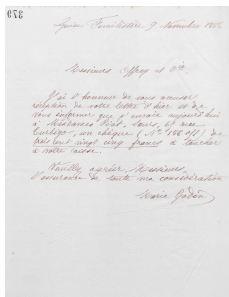 379
Guise Familistère, 9 Novembre 1882
Messieurs Offroy et Cie
J'ai l'honneur de vous accuser
réception de votre lettre d'hier et de
vous informer que j'envoie aujourd'hui
à Mesdames Sœurs, 67 rue
Turbigo, un chèque (No 188 ) de
trois cent vingt cinq francs à toucher
à votre caisse.
Veuillez agréer, Messieurs,
l'assurance de toute ma considération
Marie Godin